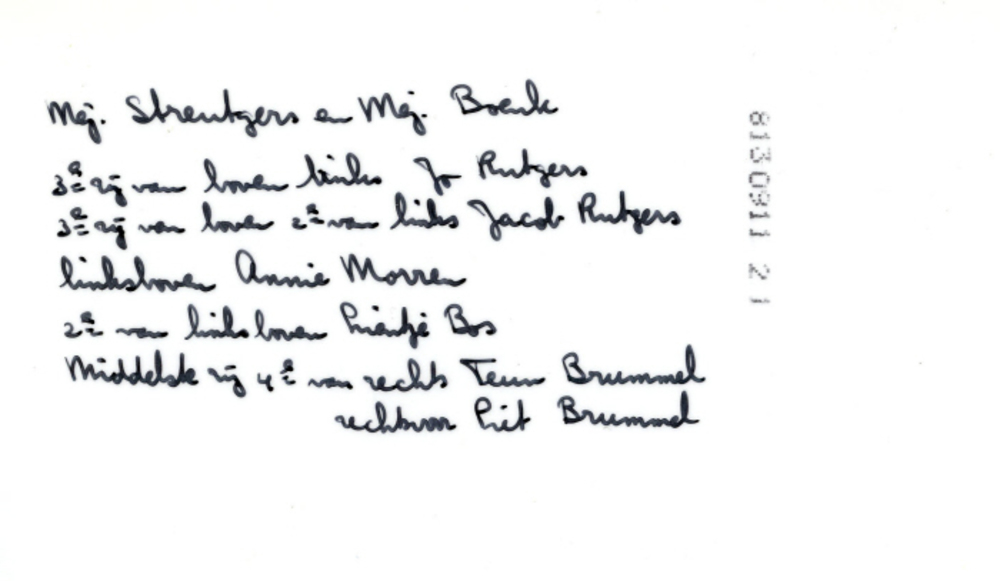 Mej. Strentzers en Mej. Boenk
3e rij van boven links Jo Rutgers
3e rij van boven 2e van links Jacob Rutgers
linksboven Annie Morren
2e van linksboven Prientje Bos
Middelste rij 4e van rechts Teun Brummel
rechtsvoor Piet Brummel
8130911 21